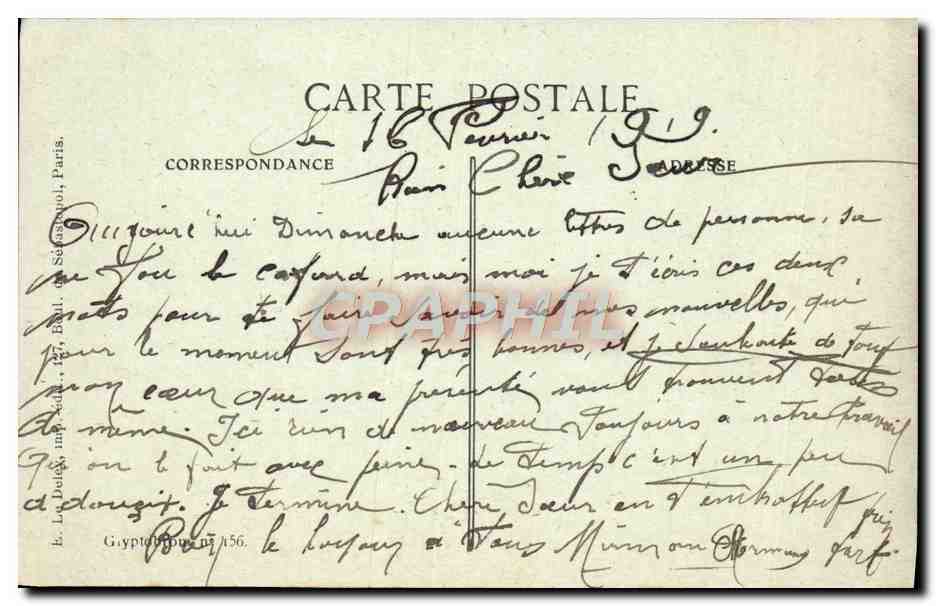 CARTE POSTALE
Le 16 Fevrier 1919.
CORRESPONDANCE ADRESSE
Bien Chère Soeur
Aujourd'hui Dimanche aucune lettres de personne, sa
me fou le cafard, mais moi je t'écris ces deux
mots pour te faire savoir de mes nouvelles, qui
pour le moment sont très bonnes, et je souhaite de tout
mon cœur que ma présente vous trouvent toutes
de même. Ici rien de nouveau Toujours à notre travail
qu'on le fait avec peine. Le temps c'est un peu
adouçit. Je termine Chère Sœur en t'embrassant
le bonjour à Tous fort
E. L. Deley, imp.-édit., 127, Boul. de Sébastopol, Paris.
Glyptographie 156.
CPAPHIL